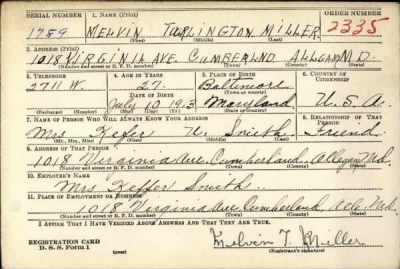 SERIAL NUMBER 1. NAME (Print) ORDER NUMBER
1789 MELVIN TARLINGTON MILLER 2335
(First) (Middle) (Last)
2. ADDRESS (Print)
1018 VIRGINIA AVE CUMBERLND ALLGANY MD.
(Number and street or R. F. D. number) (Town) (County) (State)
3. TELEPHONE 4. AGE IN YEARS 5. PLACE OF BIRTH 6. COUNTRY OF CITIZENSHIP
2711 W. 27. Baltimore
DATE OF BIRTH (Town or county)
July 10 1913 Maryland U.S.A.
(Exchange) (Number) (Mo.) (Day) (Yr.) (State or country)
7. NAME OF PERSON WHO WILL ALWAYS KNOW YOUR ADDRESS 8. RELATIONSHIP OF THAT PERSON
Mrs Kefer N. Smith Friend
(Mr., Mrs., Miss) (First) (Middle) (Last)
9. ADDRESS OF THAT PERSON
1018 Virginia Ave Cumberland Allegany Md.
(Number and street or R. F. D. number) (Town) (County) (State)
10. EMPLOYER'S NAME
Mrs Keffer Smith
11. PLACE OF EMPLOYMENT OR BUSINESS
1018 Virginia Ave Cumberland Md.
(Number and street or R. F. D. number) (Town) (County) (State)
I AFFIRM THAT I HAVE VERIFIED ABOVE ANSWERS AND THAT THEY ARE TRUE.
REGISTRATION CARD
D. S. S. Form 1
Melvin T. Miller
(Registrant's signature)